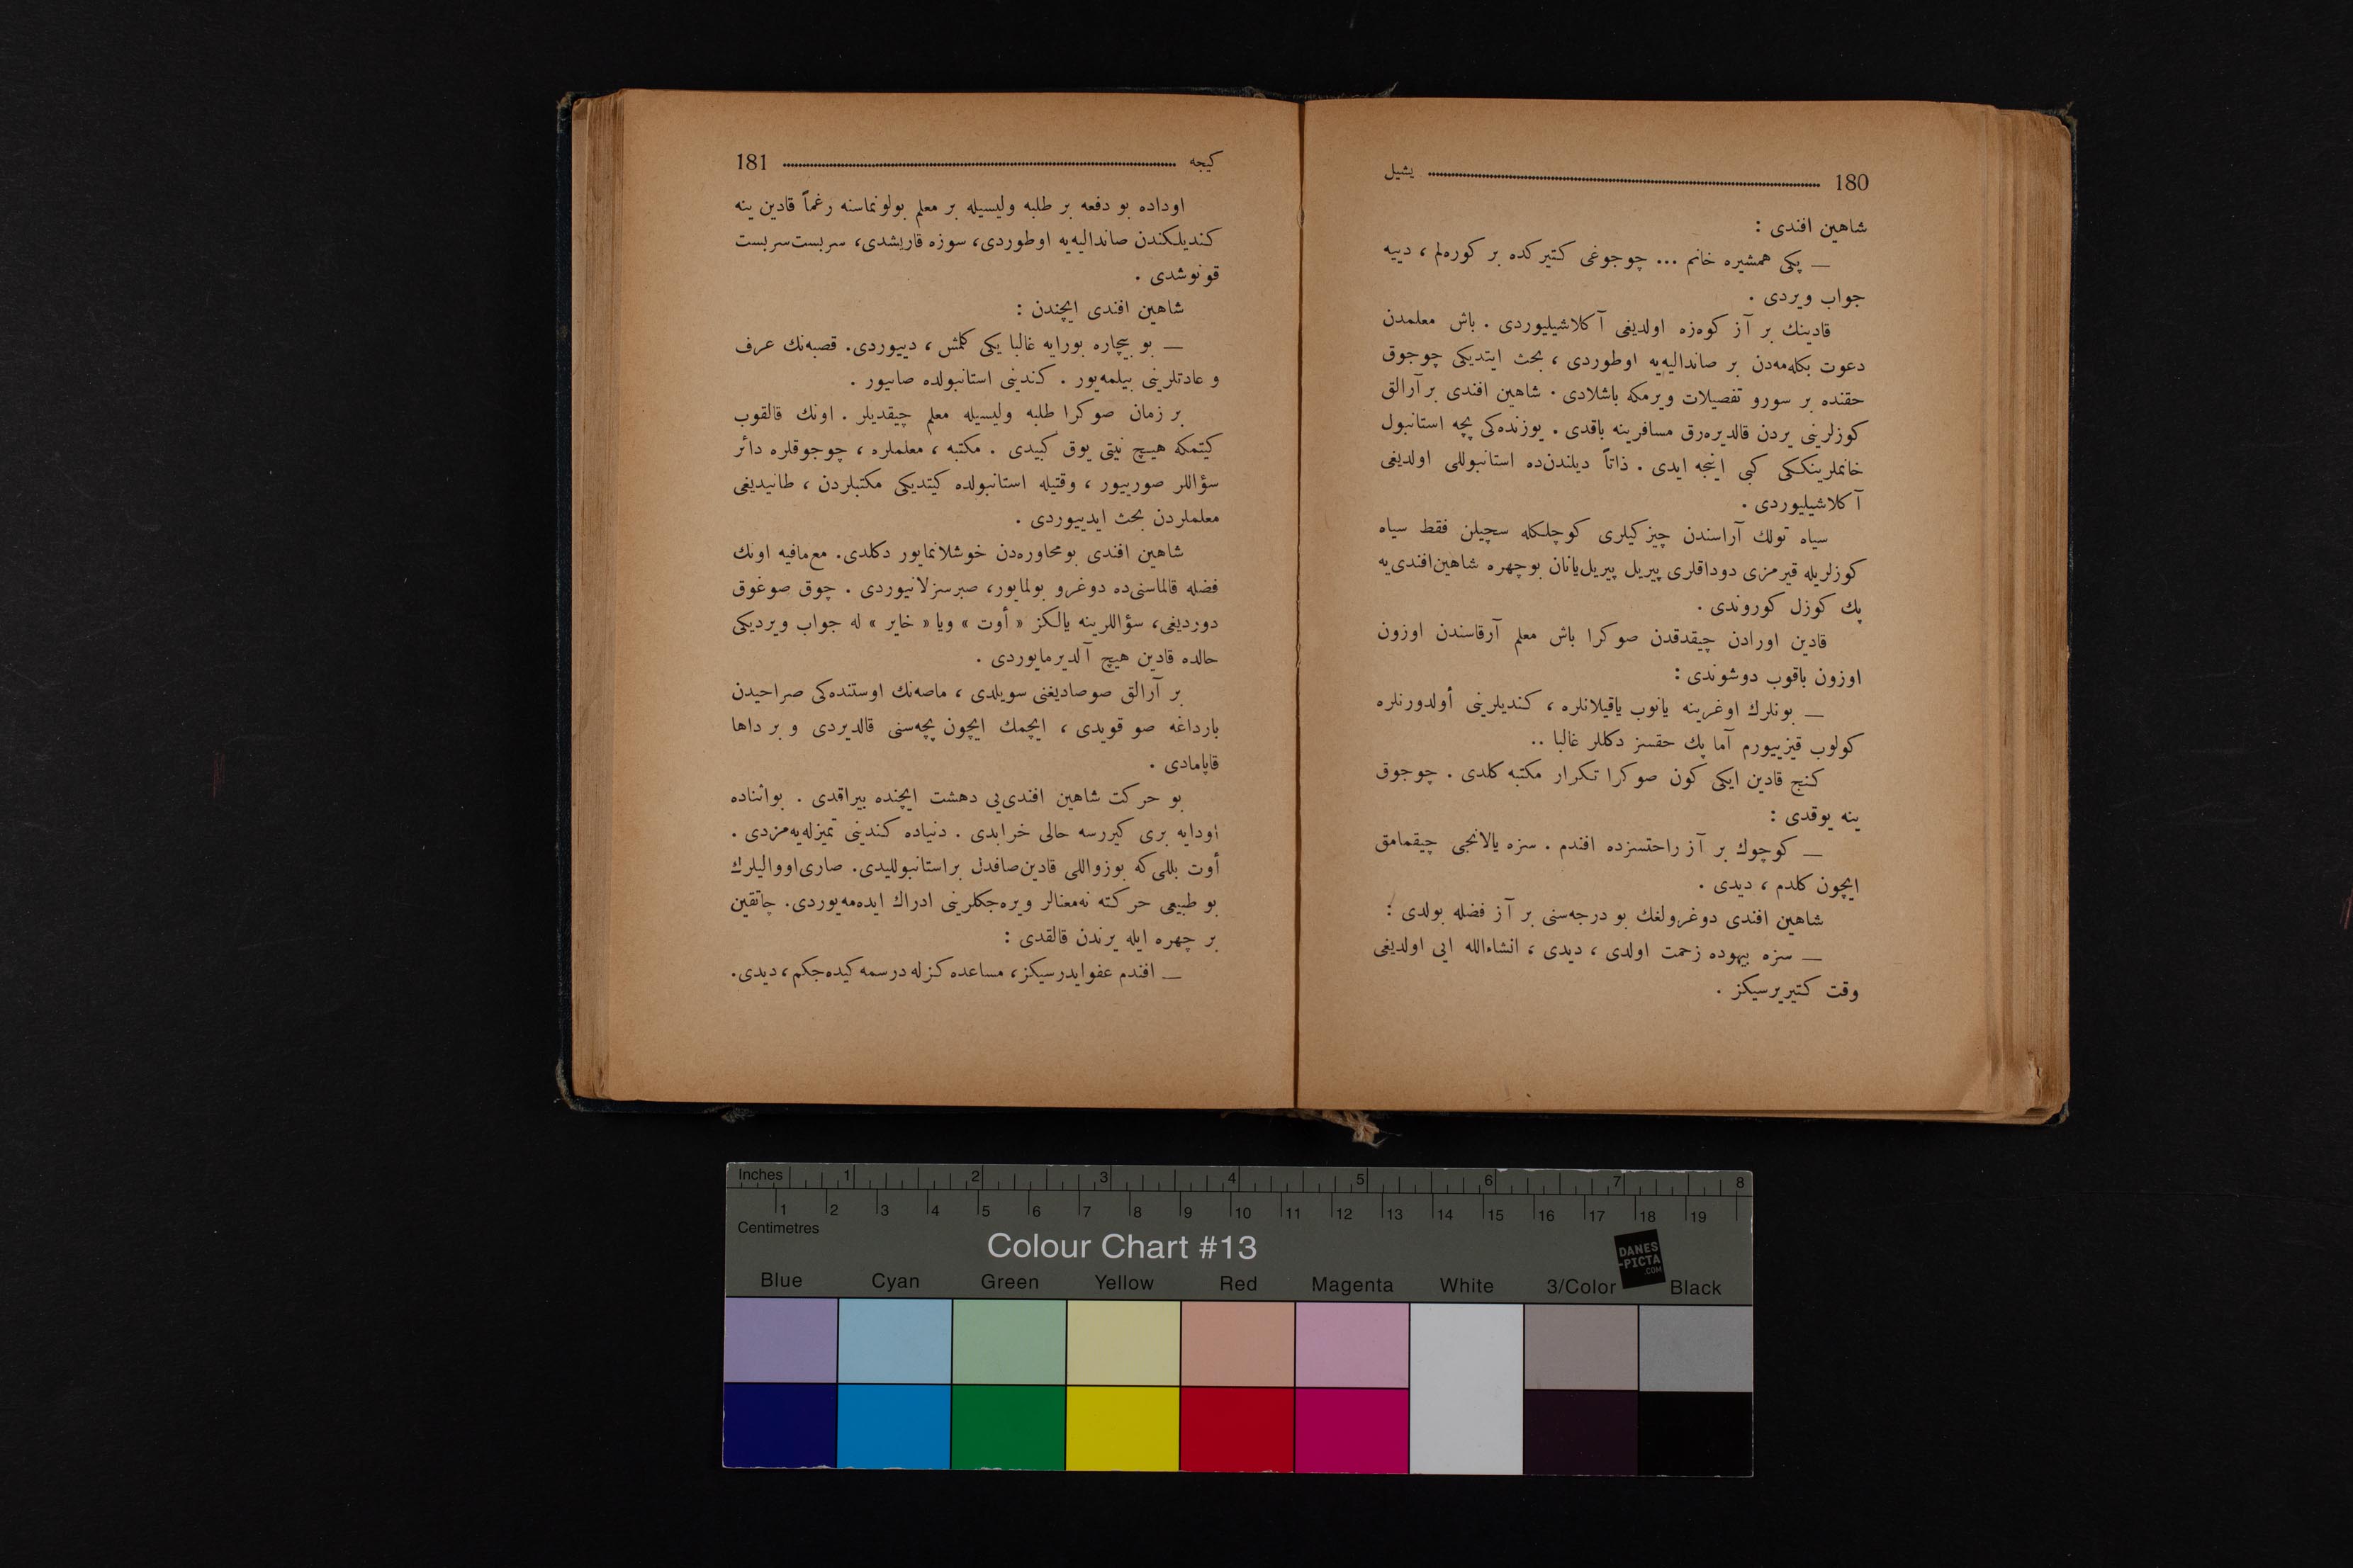 180 يشيل
شاهين افندی :
— پكی همشيره خانم ... چوجوغی كتيركده بر كورهلم ، دييه
جواب ويردی .
قادينك بر آز كوهزه اولديغی آكلاشيليوردی . باش معلمدن
دعوت بكلهمهدن بر صانداليهيه اوطوردی ، بحث ايتديكی چوجوق
حقنده بر سورو تفصيلات ويرمكه باشلادی . شاهين افندی بر آرالق
كوزلرينی يردن قالديرهرق مسافرينه باقدی . يوزندهكی پچه استانبول
خانملرينككی كبی اينجه ايدی . ذاتاً ديلندنده استانبوللی اولديغی
آكلاشيليوردی .
سياه تولك آراسندن چيزكيلری كوچلكله سچيلن فقط سياه
كوزلريله قيرمزی دوداقلری پيريل پيريل يانان بو چهره شاهين افندیيه
پك كوزل كوروندی .
قادين اورادن چيقدقدن صوكرا باش معلم آرقاسندن اوزون
اوزون باقوب دوشوندی :
— بونلرك اوغرينه يانوب ياقيلانلره ، كنديلرينی أولدورنلره
كولوب قيزييورم آما پك حقسز دكللر غالبا ..
كنج قادين ايكی كون صوكرا تكرار مكتبه كلدی . چوجوق
ينه يوقدی :
— كوچوك بر آز راحتسزده افندم . سزه يالانجی چيقمامق
ايچون كلدم ، ديدی .
شاهين افندی دوغرولغك بو درجهسنی بر آز فضله بولدی :
— سزه بيهوده زحمت اولدی ، ديدی ، انشاءالله ايی اولديغی
وقت كتيريرسيكز .
كيجه 181
اوداده بو دفعه بر طلبه وليسيله بر معلم بولونماسنه رغماً قادين ينه
كنديلكندن صانداليهيه اوطوردی، سوزه قاريشدی، سربست سربست
قونوشدی .
شاهين افندی ايچندن :
— بو بيچاره بورايه غالبا يكی كلمش ، دييوردی. قصبهنك عرف
و عادتلرينی بيلمهيور . كندينی استانبولده صانيور .
بر زمان صوكرا طلبه وليسيله معلم چيقديلر . اونك قالقوب
كيتمكه هيچ نيتی يوق كبيدی . مكتبه ، معلملره ، چوجوقلره دائر
سؤاللر صورييور ، وقتيله استانبولده كيتديكی مكتبلردن ، طانيديغی
معلملردن بحث ايدييوردی .
شاهين افندی بو محاورهدن خوشلانمايور دكلدی. مع مافيه اونك
فضله قالماسنیده دوغرو بولمايور، صبرسزلانيوردی . چوق صوغوق
دورديغی، سؤاللرينه يالكز « أوت » ويا « خاير » له جواب ويرديكی
حالده قادين هيچ آلديرمايوردی .
بر آرالق صوصاديغنی سويلدی ، ماصهنك اوستندهكی صراحيدن
بارداغه صو قويدی ، ايچمك ايچون پچهسنی قالديردی و بر داها
قاپامادی .
بو حركت شاهين افندیيی دهشت ايچنده بيراقدی . بو اثناده
اودايه بری كيررسه حالی خرابدی . دنياده كندينی تميزلهيهمزدی .
أوت بللی كه بو زواللی قادين صافدل بر استانبولليدی. صاری اوواليلرك
بو طبيعی حركته نه معنالر ويرهجكلرينی ادراك ايدهمهيوردی. چاتقين
بر چهره ايله يرندن قالقدی :
— افندم عفو ايدرسيكز، مساعده كزله درسمه كيدهجكم، ديدی.
Inches 1 2 3 4 5 6 7 8
1 2 3 4 5 6 7 8 9 10 11 12 13 14 15 16 17 18 19
Centimetres
Colour Chart #13
DANES
-PICTA
.COM
Blue Cyan Green Yellow Red Magenta White 3/Color Black